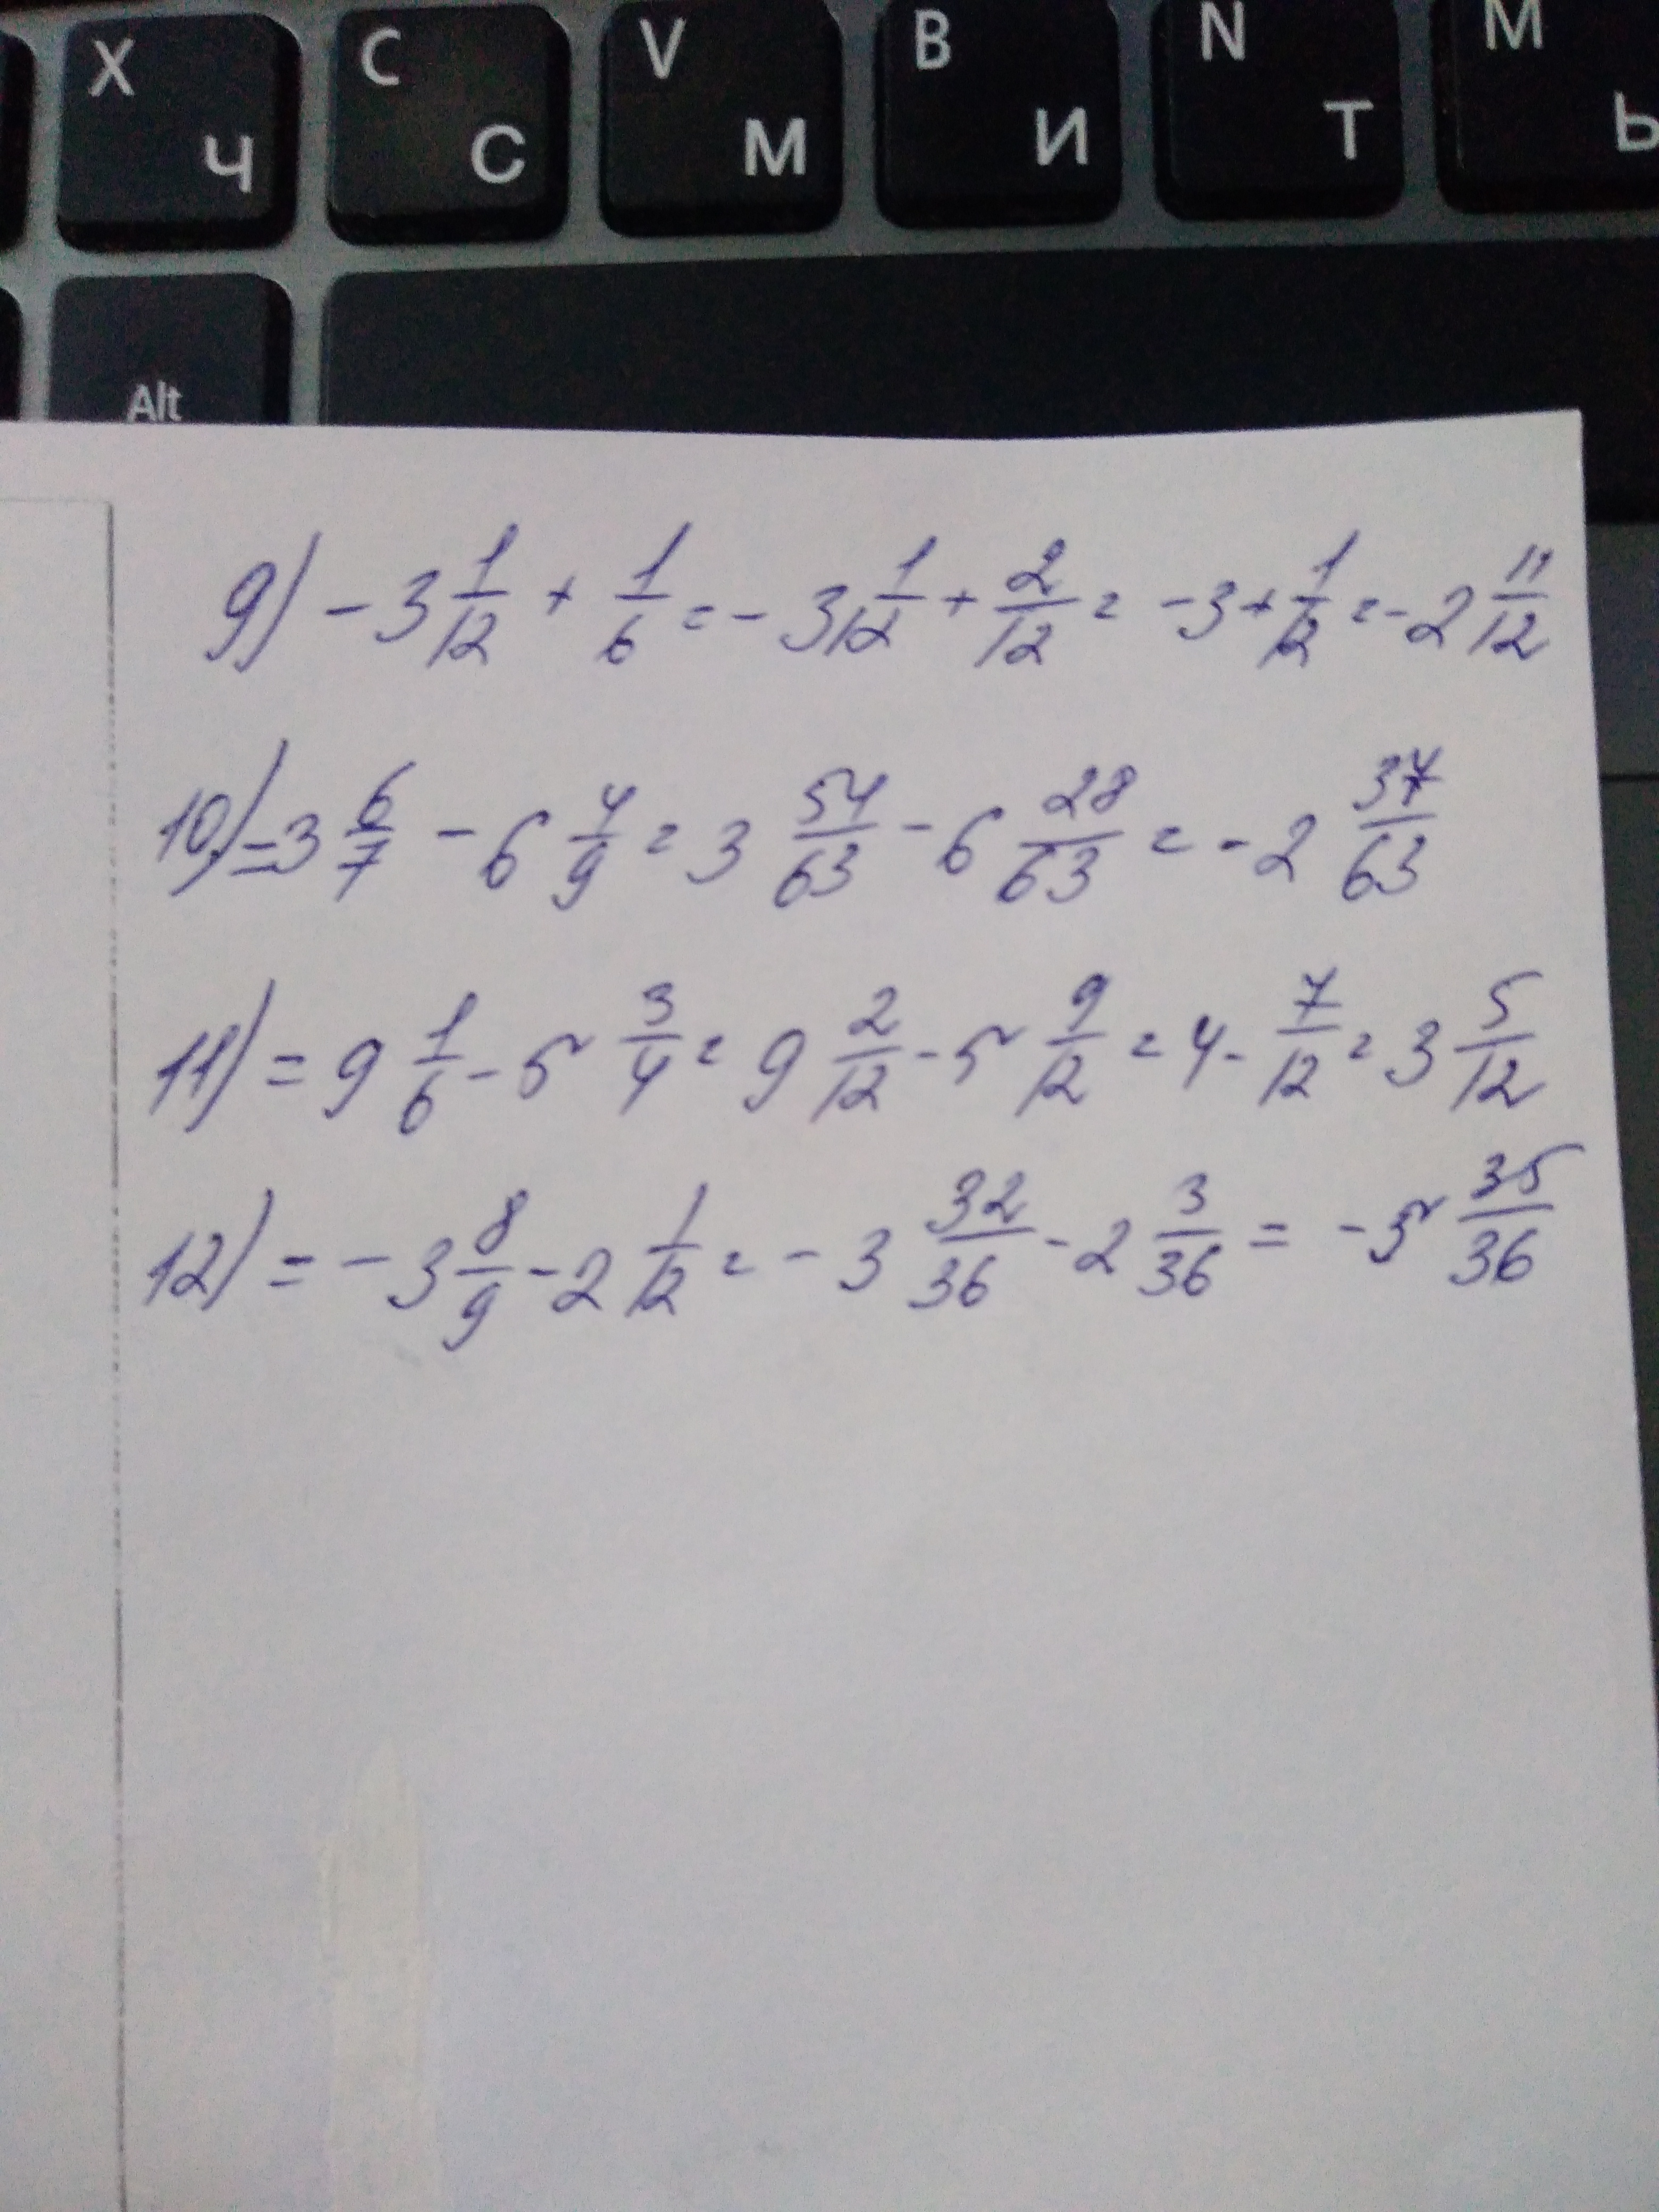 X Ч C С V М B И N Т M Ь
Alt
9) - 3 1/12 + 1/6 = - 3 1/12 + 2/12 = - 3 + 1/12 = - 2 11/12
10) = 3 6/7 - 6 4/9 = 3 54/63 - 6 28/63 = - 2 37/63
11) = 9 1/6 - 5 3/4 = 9 2/12 - 5 9/12 = 4 - 7/12 = 3 5/12
12) = - 3 8/9 - 2 1/12 = - 3 32/36 - 2 3/36 = - 5 35/36